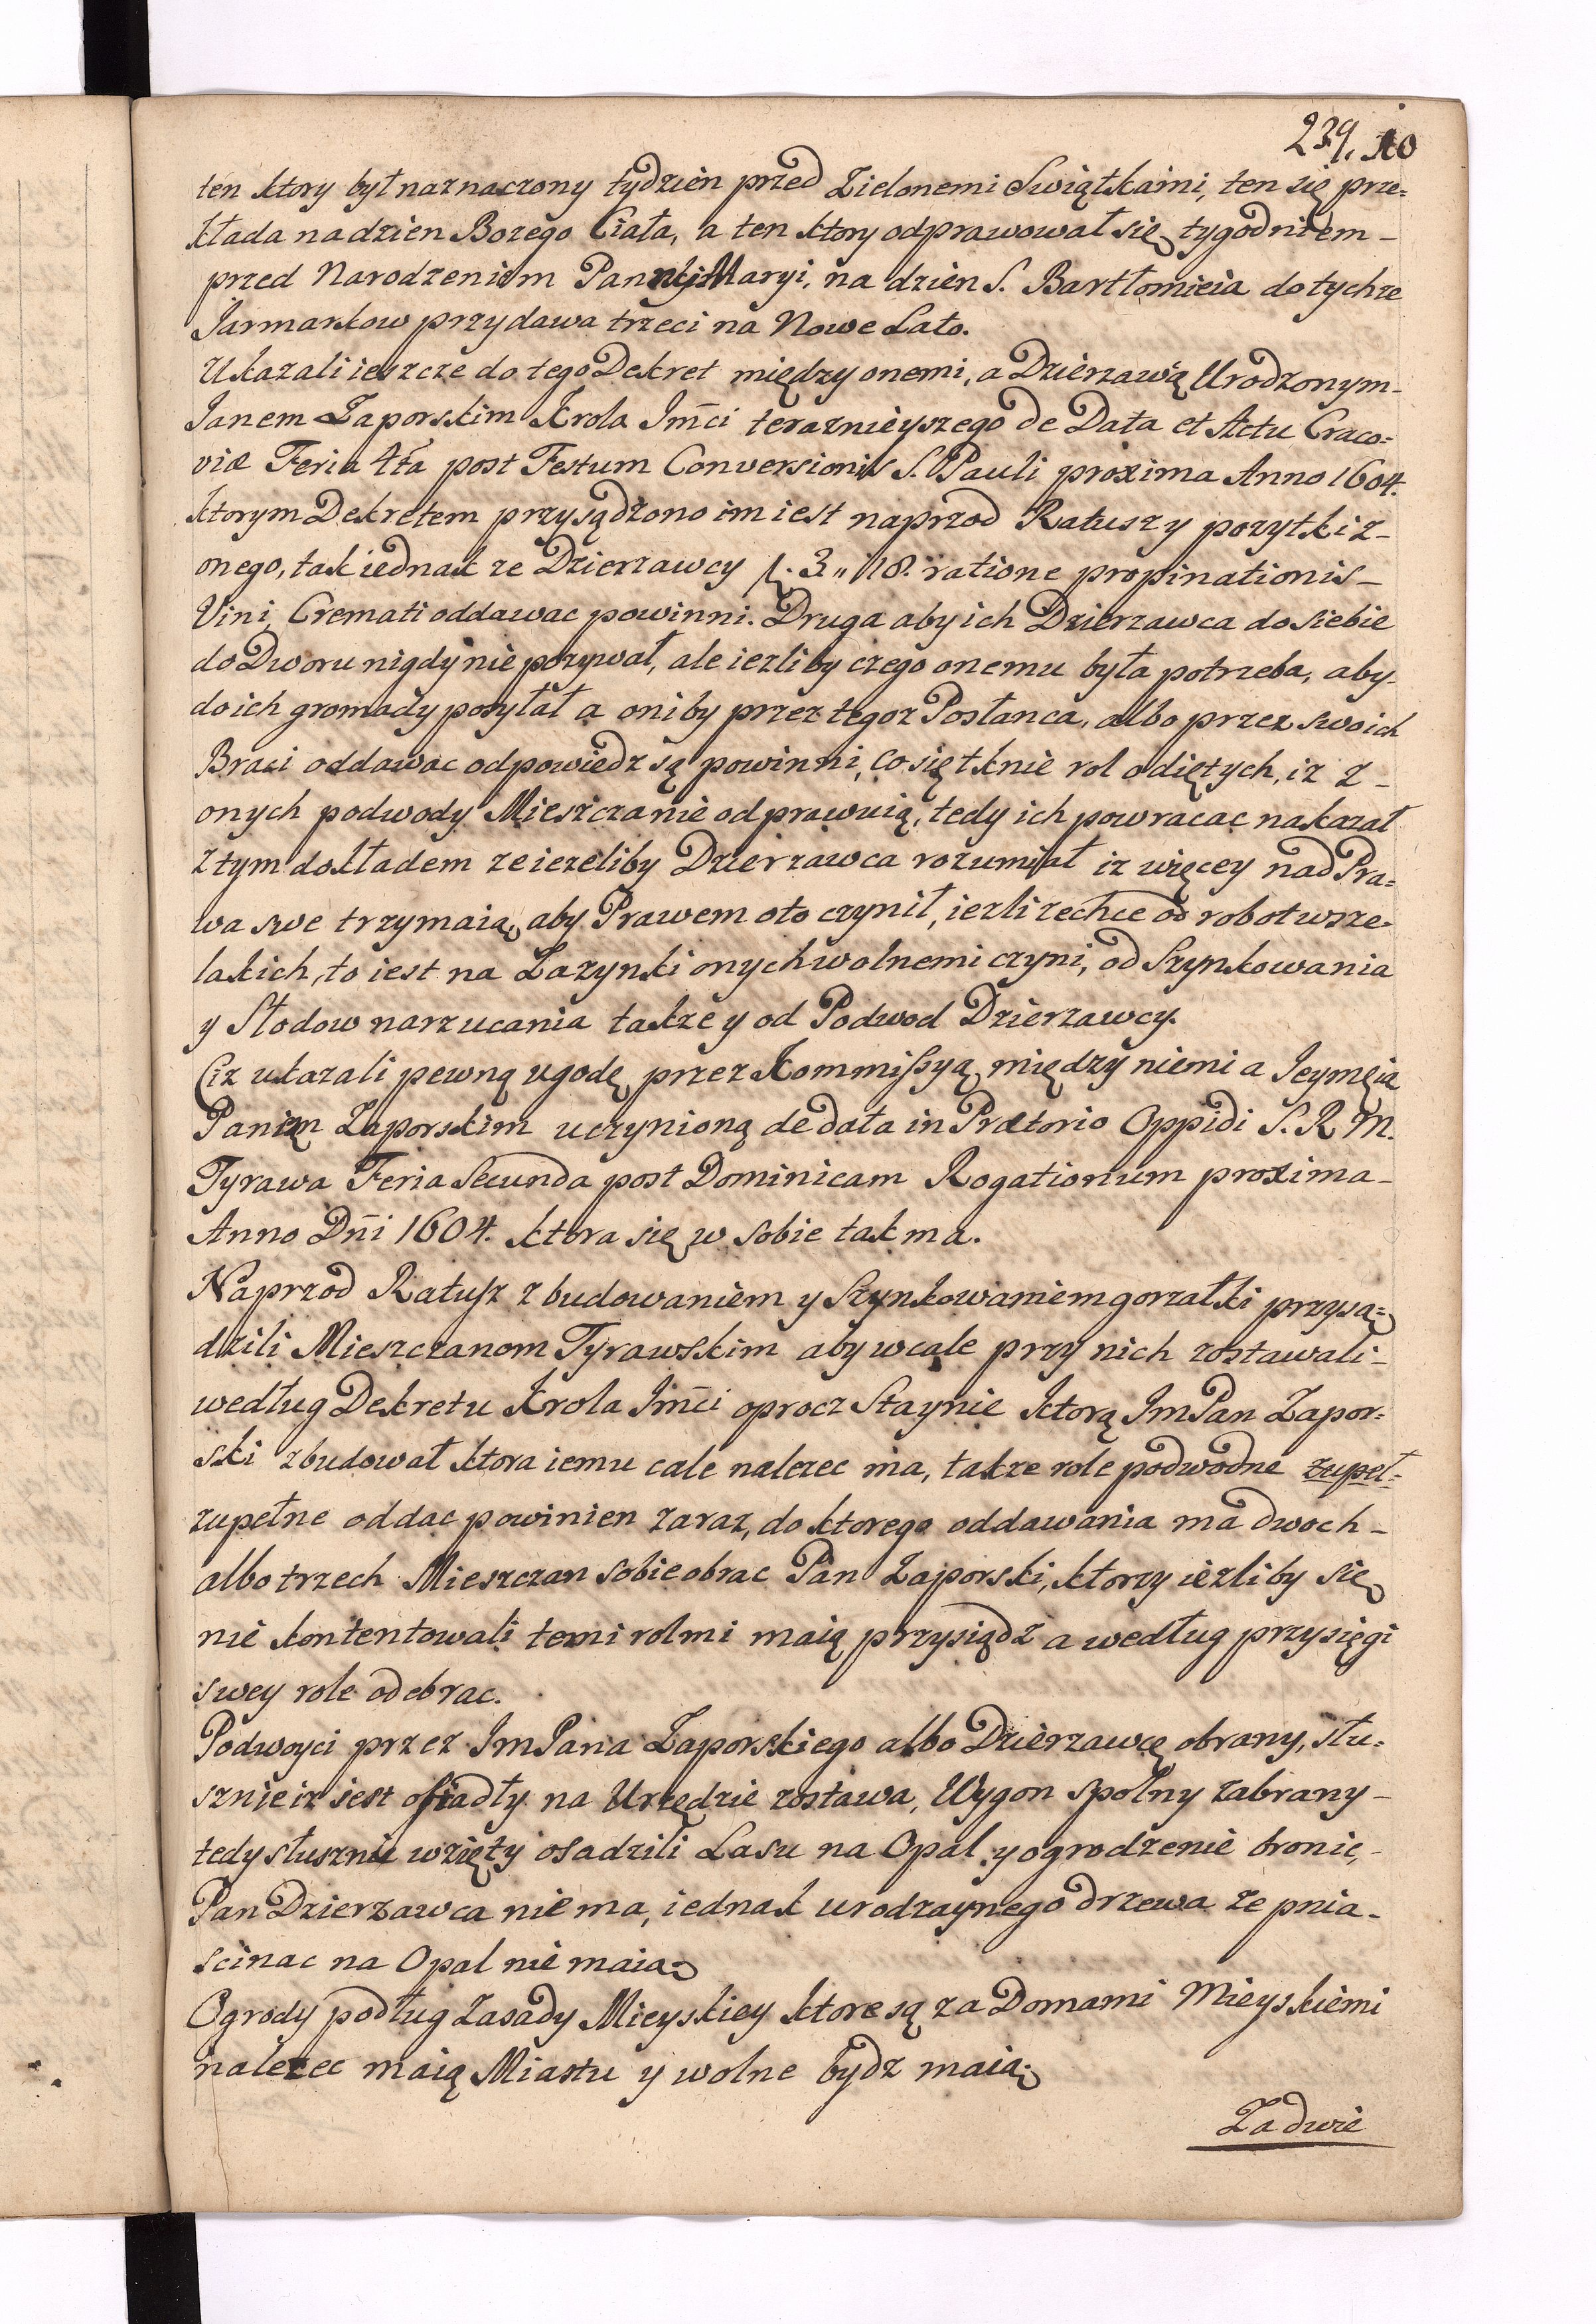 239. 110
ten ktory był naznaczony tydzien przed Zielonemi Swiątkami, ten się prze=
kłada na dzien Bozego Ciała, a ten ktory odprawował się tygodniem –
przed Narodzeniem Panny Maryi, na dzien S. Bartłomieia do tychze
Jarmarkow przydawa trzeci na Nowe Lato.
Ukazali ieszcze do tego Dekret między onemi, a Dzierzawią Urodzonym –
Janem Zaporskim Krola Jmci teraznieyszego de Data et Actu Craco=
viæ Feria 4ta post Festum Conversionis S. Pauli proxima Anno 1604.
ktorym Dekretem przysądzono im iest naprzod Ratuszy pozytki z –
onego, tak iednak ze Dzierzawcy f. 3 „ 18. ratione propinationis –
Vini Cremati oddawac powinni. Druga aby ich Dzierzawca do siebie
do Dworu nigdy nie pozywał, ale iezliby czego onemu była potrzeba, aby –
do ich gromady posyłał a oniby przez tegoz Posłanca, albo przez swoich
Braci oddawac odpowiedz są powinni, co się tknie rol odiętych, iz z –
onych podwody Mieszczanie odprawuią, tedy ich powracac nakazał
z tym dokładem ze iezeliby Dzierzawca rozumiał iz więcey nad Pra=
wa swe trzymaią, aby Prawem oto czynił, iezli zechce od robot wsze=
lakich, to iest na Zazynki onych wolnemi czyni, od Szynkowania
y Słodow narzucania takze y od Podwod Dzierzawcy.
Ciz ukazali pewną ugodę przez Kommissyą między niemi a Jeymęią
Paniem Zaporskim uczynioną de data in Prætorio Oppidi S. R. M.
Tyrawa Feria Secunda post Dominicam Rogationum proxima –
Anno Dni 1604. ktora się w sobie tak ma.
Naprzod Ratusz z budowaniem y Szynkowaniem gorzałki przysą=
dzili Mieszczanom Tyrawskim aby wcale przy nich zostawali –
według Dekretu Krola Jmci oprocz Staynie ktorą JmPan Zapor=
ski zbudował ktora iemu cale nalezec ma, takze role podwodne zupeł=
zupełne oddac powinien zaraz, do ktorego oddawania ma dwoch –
albo trzech Mieszczan sobie obrac Pan Zaporski, ktorzy iezliby się
nie kontentowali temi rolmi maią przysiądz a według przysięgi
swey role odebrac.
Podwoyci przez JmPana Zaporskiego albo Dzierzawcę obrany, słu=
sznie iz iest osiadły na Urzędzie zostawa, Wygon spolny zabrany –
tedy słusznie wzięty osadzili Lasu na Opal y ogrodzenie bronic, –
Pan Dzierzawca nie ma, iednak urodzaynego drzewa ze pnia –
scinac na Opal nie maią.
Ogrody podług Zasady Mieyskiey ktore są za Domami Mieyskiemi
nalezec maią Miastu y wolne bydz maią.
Za dwie